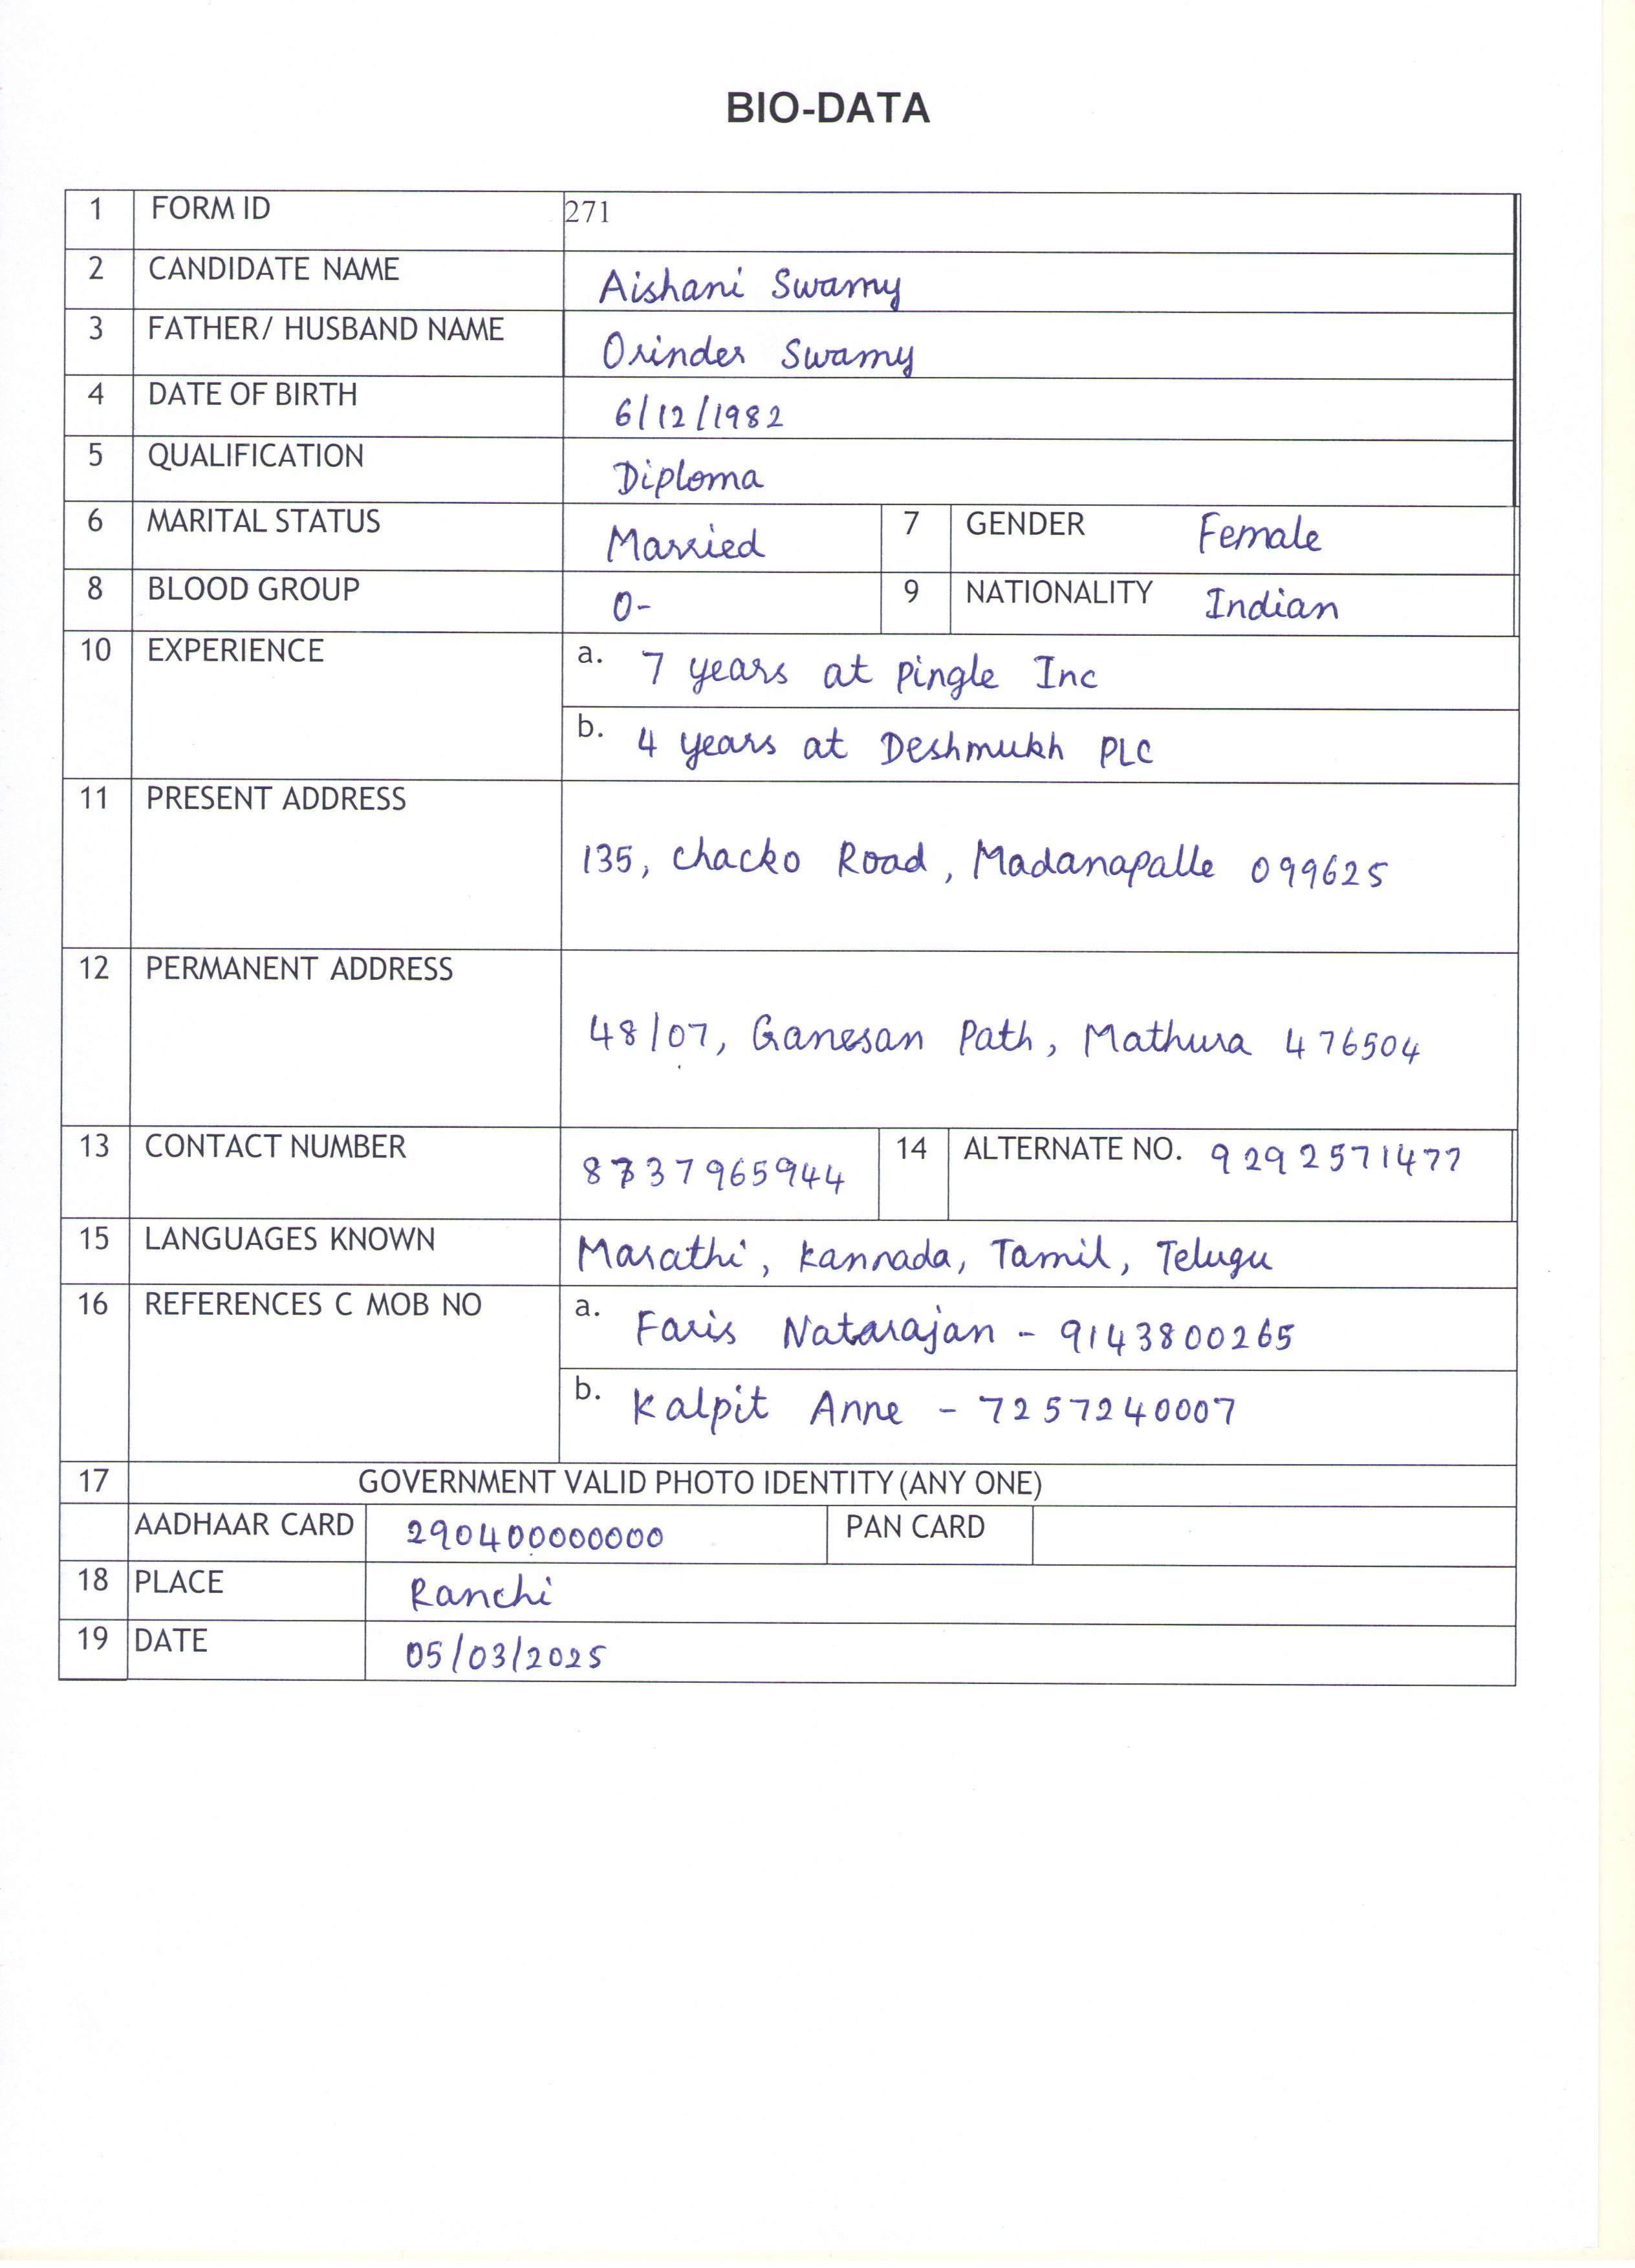 BIO-DATA
1 FORM ID 271
2 CANDIDATE NAME Aishani Swamy
3 FATHER/ HUSBAND NAME Orinder Swamy
4 DATE OF BIRTH 6/12/1982
5 QUALIFICATION Diploma
6 MARITAL STATUS Married 7 GENDER Female
8 BLOOD GROUP O- 9 NATIONALITY Indian
10 EXPERIENCE a. 7 years at Pingle Inc
b. 4 years at Deshmukh PLC
11 PRESENT ADDRESS
135, Chacko Road, Madanapalle 099625
12 PERMANENT ADDRESS
48/07, Ganesan Path, Mathura 476504
13 CONTACT NUMBER 8737965944 14 ALTERNATE NO. 9292571477
15 LANGUAGES KNOWN Marathi, Kannada, Tamil, Telugu
16 REFERENCES C MOB NO a. Faris Natarajan - 9143800265
b. Kalpit Anne - 7257240007
17 GOVERNMENT VALID PHOTO IDENTITY (ANY ONE)
AADHAAR CARD 290400000000 PAN CARD
18 PLACE Ranchi
19 DATE 05/03/2025